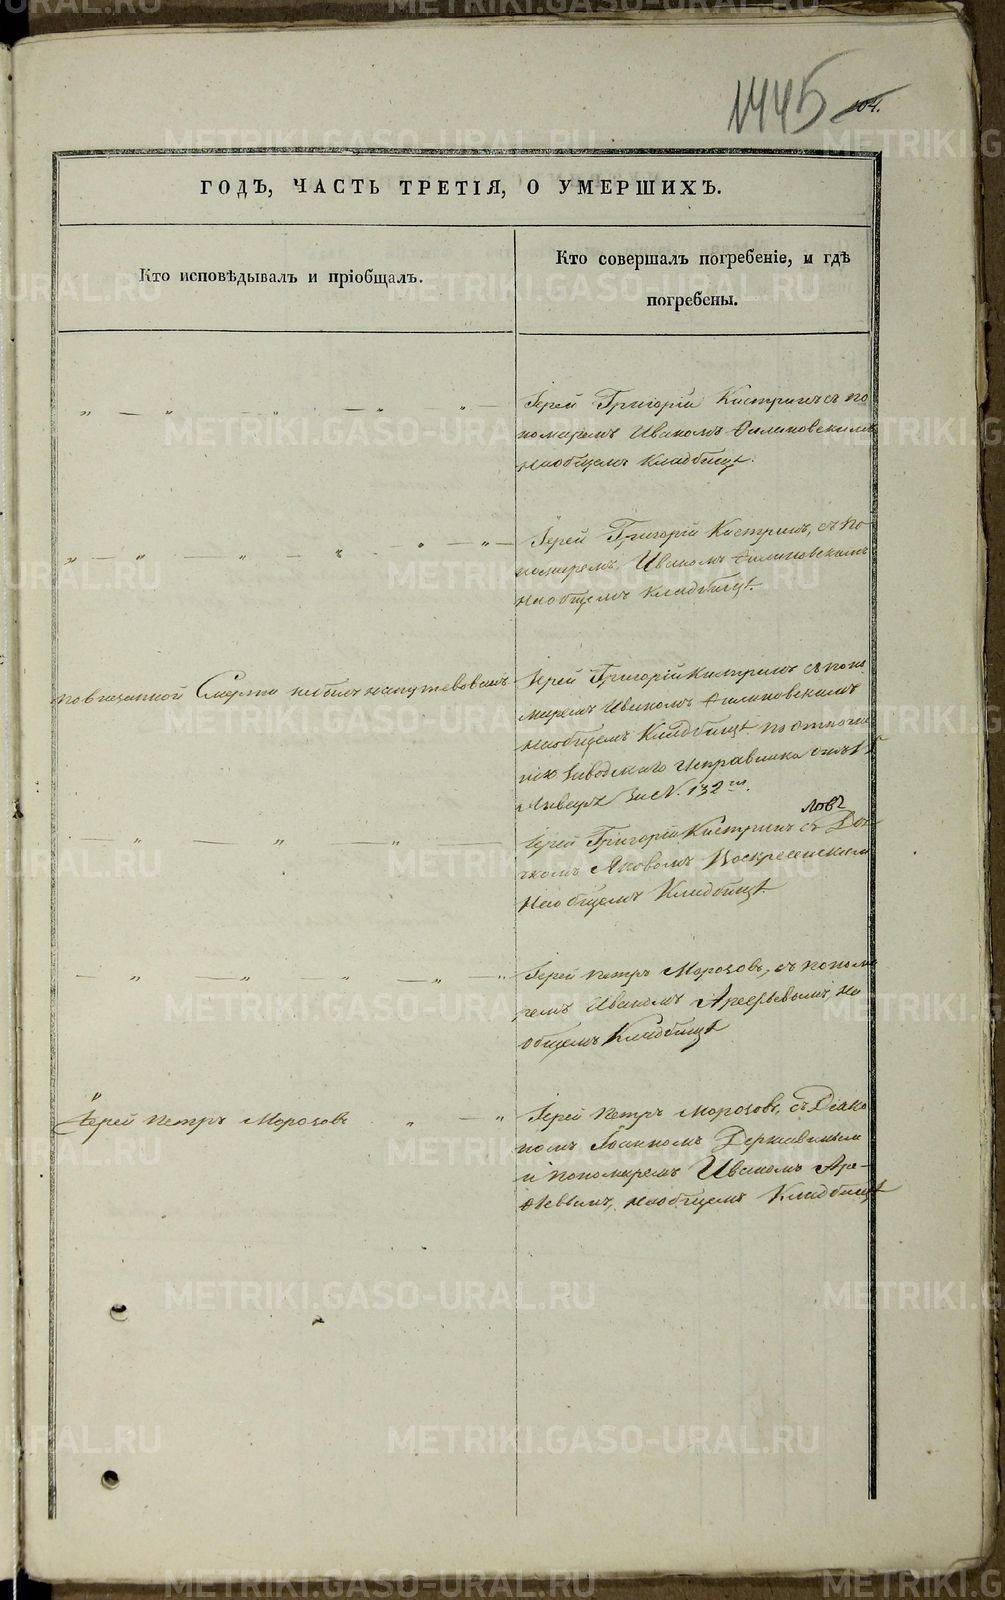 1445 104.
ГОДЪ, ЧАСТЬ ТРЕТІЯ, О УМЕРШИХЪ.
Кто исповѣдывалъ и пріобщалъ.
Кто совершалъ погребеніе, и гдѣ
погребены.
Іерей Григорій Кистринъ съ по
номаремъ Иваномъ
на общемъ кладбищѣ.
Іерей Григорій Кистринъ, съ по-
номаремъ Иваномъ
на общемъ кладбищѣ.
Смерти не былъ напутевованъ
Іерей Григорій Кистринъ съ поно
маремъ Иваномъ
на общемъ Кладбищѣ по отноше
нію Заводскаго Исправника
Января За №. 132
Іерей Григорій Кистринъ съ Дья
Яковомъ Воскресенскимъ
на общемъ Кладбищѣ.
Іерей Петръ Морозовъ, съ понома
ремъ Иваномъ Арефьевымъ, на
общемъ Кладбищѣ
Іерей Петръ Морозовъ
Іерей Петръ Морозовъ, съ Діако
номъ Іоанномъ Державинымъ
и пономаремъ Иваномъ Аре-
ѳьевымъ, на общемъ Кладбищѣ
METRIKI.GASO-URAL.RU